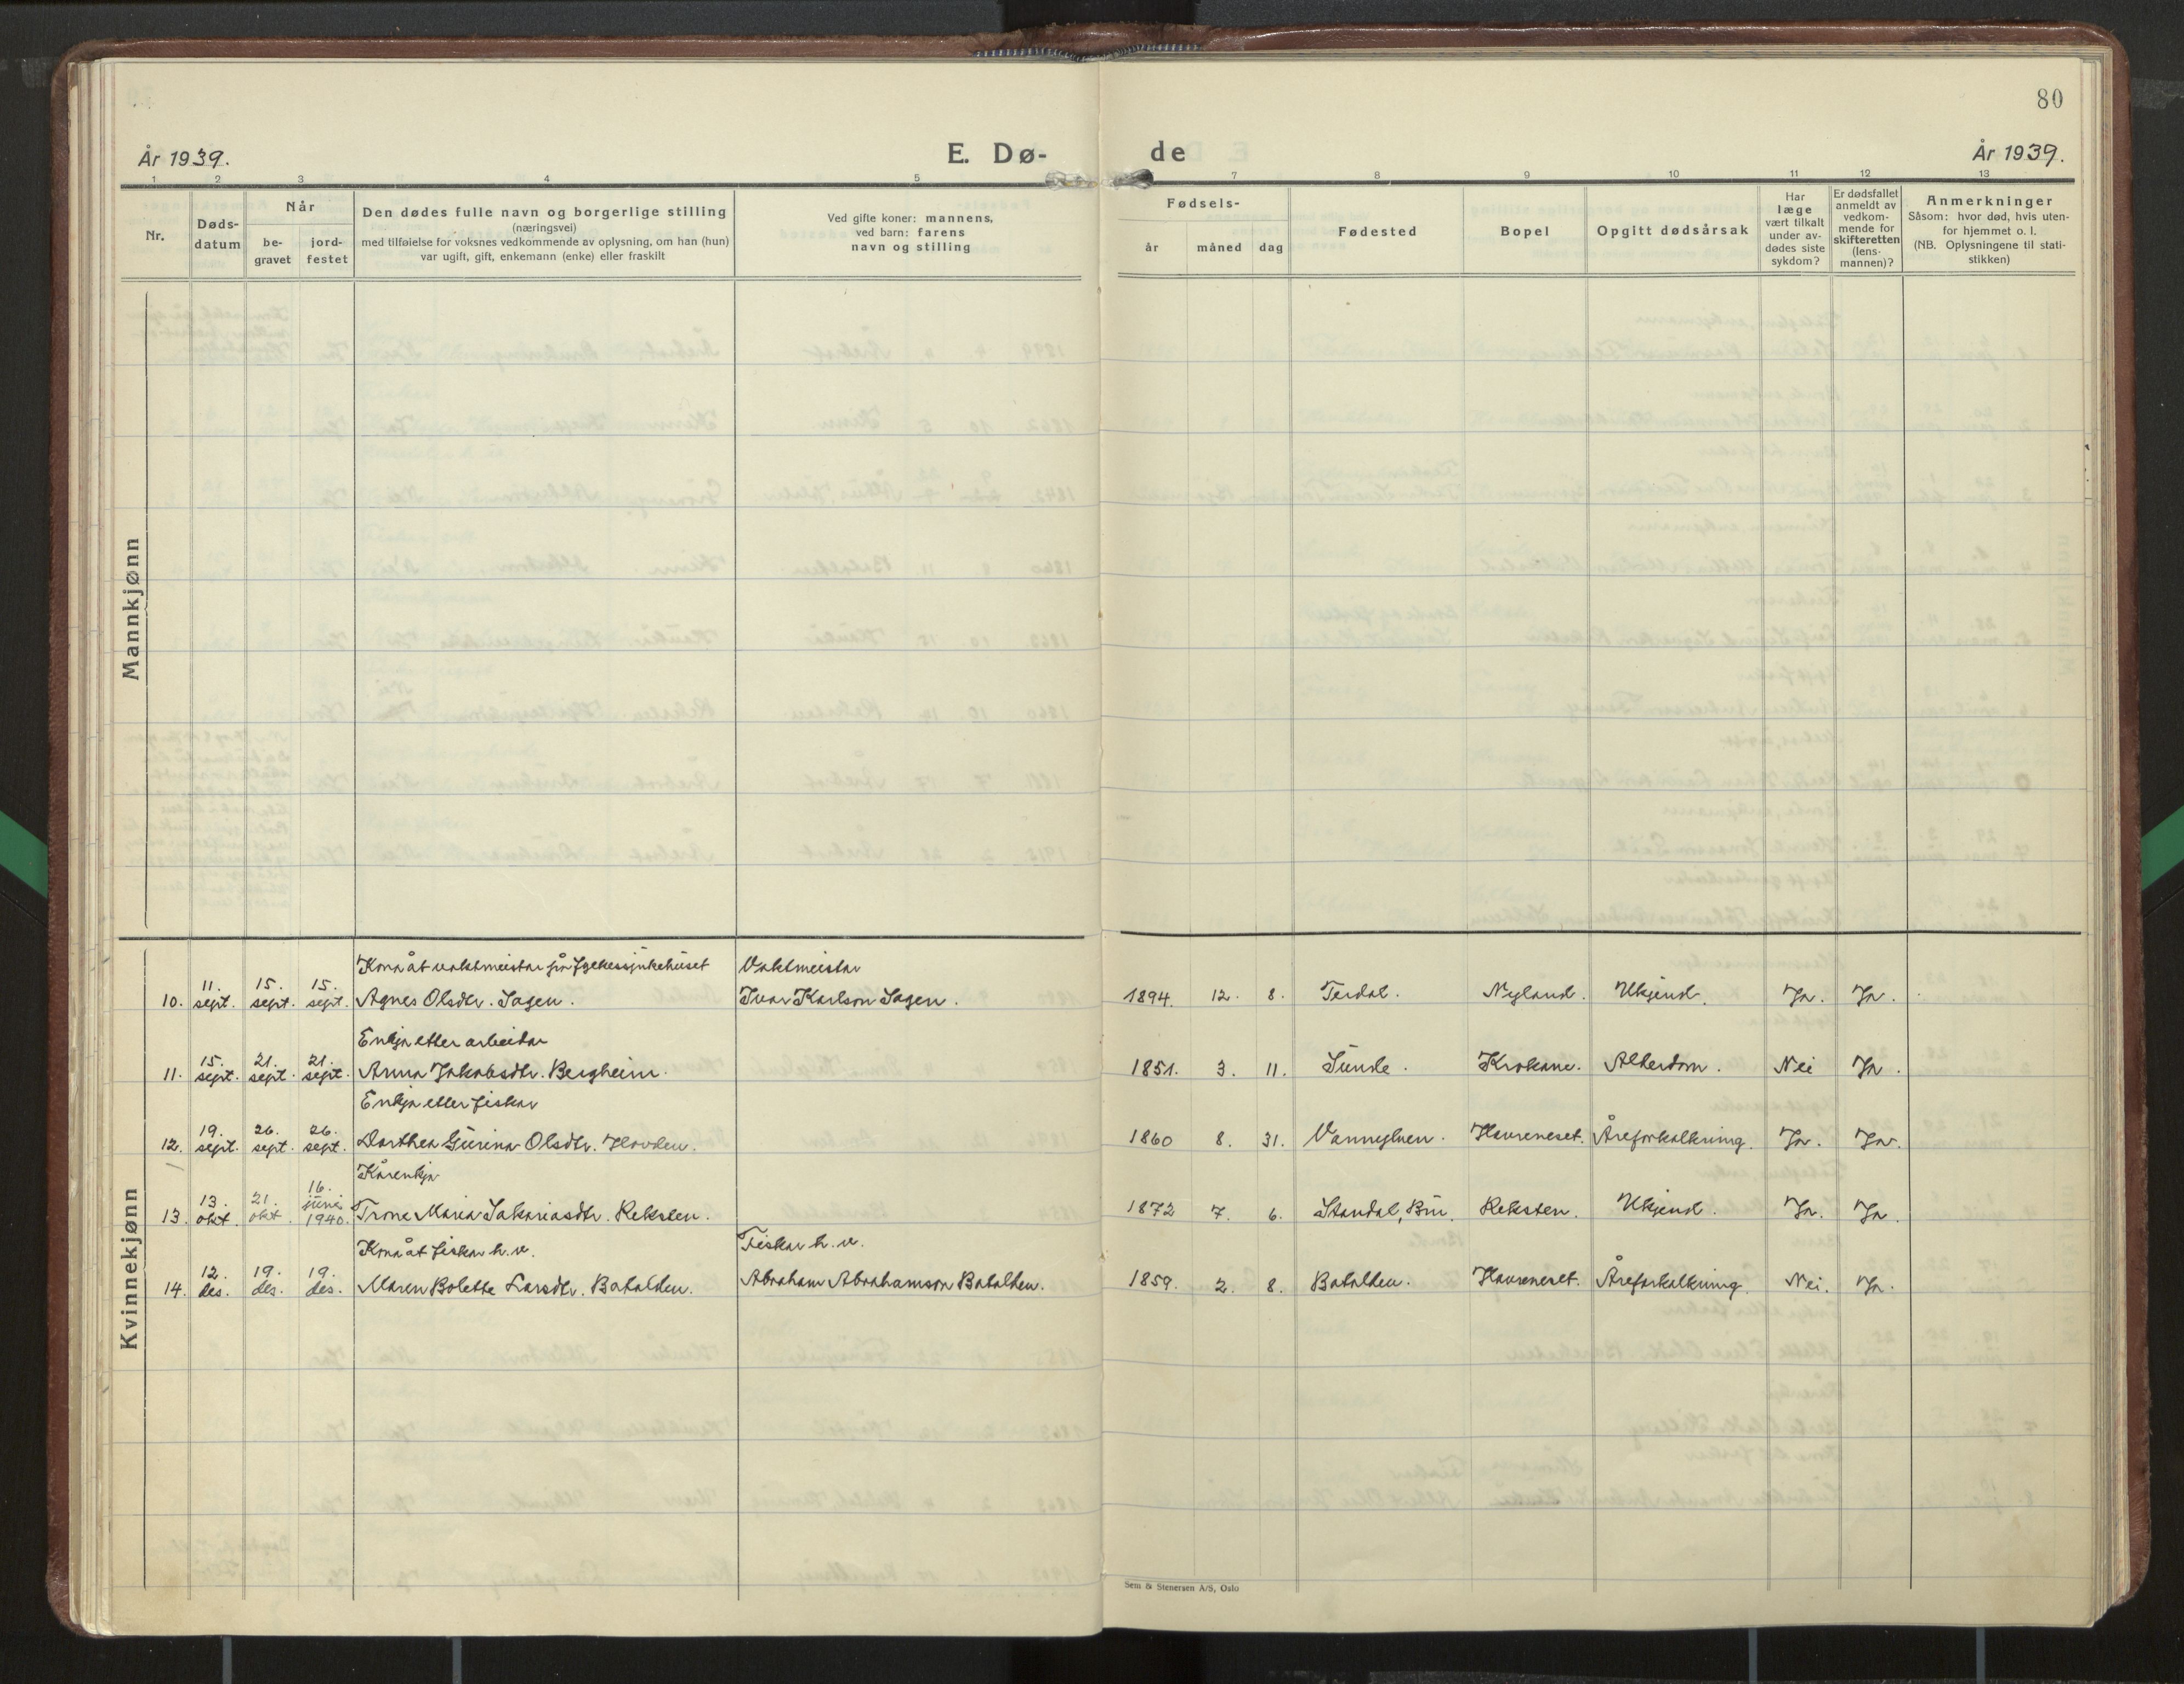 80
År 1939.
E. Dø-
de
År 1939.
1 2 3 4 5 7 8 9 10 11 12 13
Nr.
Døds-
datum
Når
be-
gravet
jord-
festet
Den dødes fulle navn og borgerlige stilling
(næringsvei)
med tilføielse for voksnes vedkommende av oplysning, om han (hun)
var ugift, gift, enkemann (enke) eller fraskilt
Ved gifte koner: mannens,
ved barn: farens
navn og stilling
Fødsels-
år måned dag
Fødested
Bopel
Opgitt dødsårsak
Har
læge
vært tilkalt
under av-
dødes siste
sykdom?
Er dødsfallet
anmeldt av
vedkom-
mende for
skifteretten
(lens-
mannen)?
Anmerkninger
Såsom: hvor død, hvis uten-
for hjemmet o. l.
(NB. Oplysningene til stati-
stikken)
Mannkjønn
Kvinnekjønn
Kona åt vaktmeistar på fylkessjukehuset Vaktmeistar
10. 11. sept. 15. sept. 15. sept. Agnes Olsdtr. Sagen. Ivar Karlson Sagen. 1894. 12. 8. Terdal. Nyland. Ukjend. Ja. Ja.
Enkja etter arbeidar
11. 15. sept. 21. sept. 21. sept. Anna Jakobsdtr. Bergheim. 1851. 3. 11. Sunde. Krokane. Alderdom. Nei Ja.
Enkja etter fiskar
12. 19. sept. 26. sept. 26. sept. Dorthea Gurina Olsdtr. Hovden. 1860 8. 31. Vannylven. Havreneset. Åreforkalkning. Ja. Ja.
Kårenkja
13. 13. okt. 21. okt. 16. juni 1940. Trone Maria Sakariasdtr. Reksten. 1872 7. 6. Standal, Bru. Reksten. Ukjend. Ja. Ja.
Kona åt fiskar h. v. Fiskar h. v.
14. 12. des. 19. des. 19. des. Maren Bolette Larsdtr. Batalden. Abraham Abrahamson Batalden. 1859. 2. 8. Batalden. Havreneset. Åreforkalkning. Nei. Ja.
Sem & Stenersen A/S, Oslo